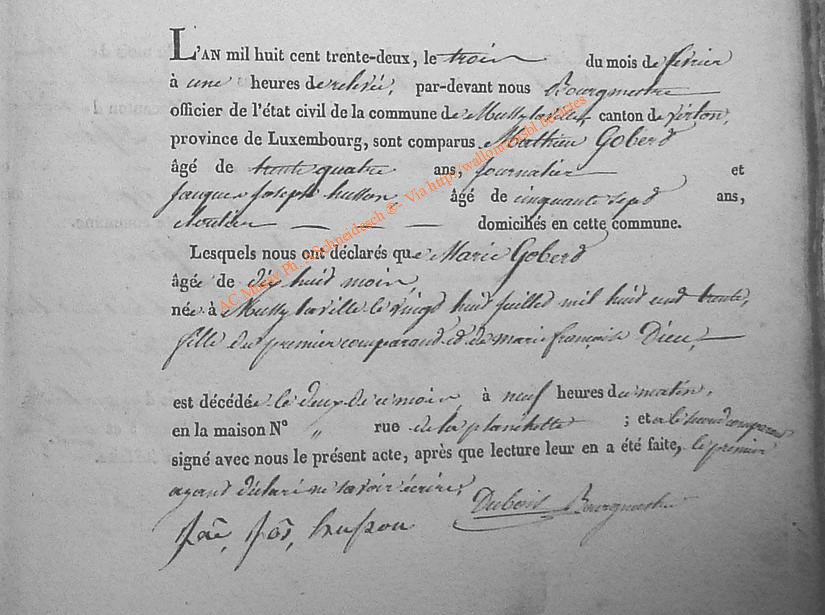 L'AN mil huit cent trente-deux, le trois du mois de février
à une heures de relevé, par-devant nous Bourgmestre
officier de l'état civil de la commune de Mussy la ville, canton de virton,
province de Luxembourg, sont comparus Mathieu Goberd
âgé de trente quatre ans, journalier et
jacques joseph husson âgé de cinquante sept ans,
domiciliés en cette commune.
Lesquels nous ont déclarés que Marie Goberd
âgée de dix huid mois,
née à Mussy laville le vingt huid juillet mil huid cend trente,
fille du premier comparand et de marie françoise Dieu,
est décédée le deux de ce mois à neuf heures du matin,
en la maison N° „ rue de la planchette ; et a le second comparand
signé avec nous le présent acte, après que lecture leur en a été faite, le premier
ayant déclaré ne savoir écrire,
Dubois Bourgmestre
jac, jos, husson
AC Mussy Ph. Schneidesch © - Via http://wallonia.asbl.be/actes